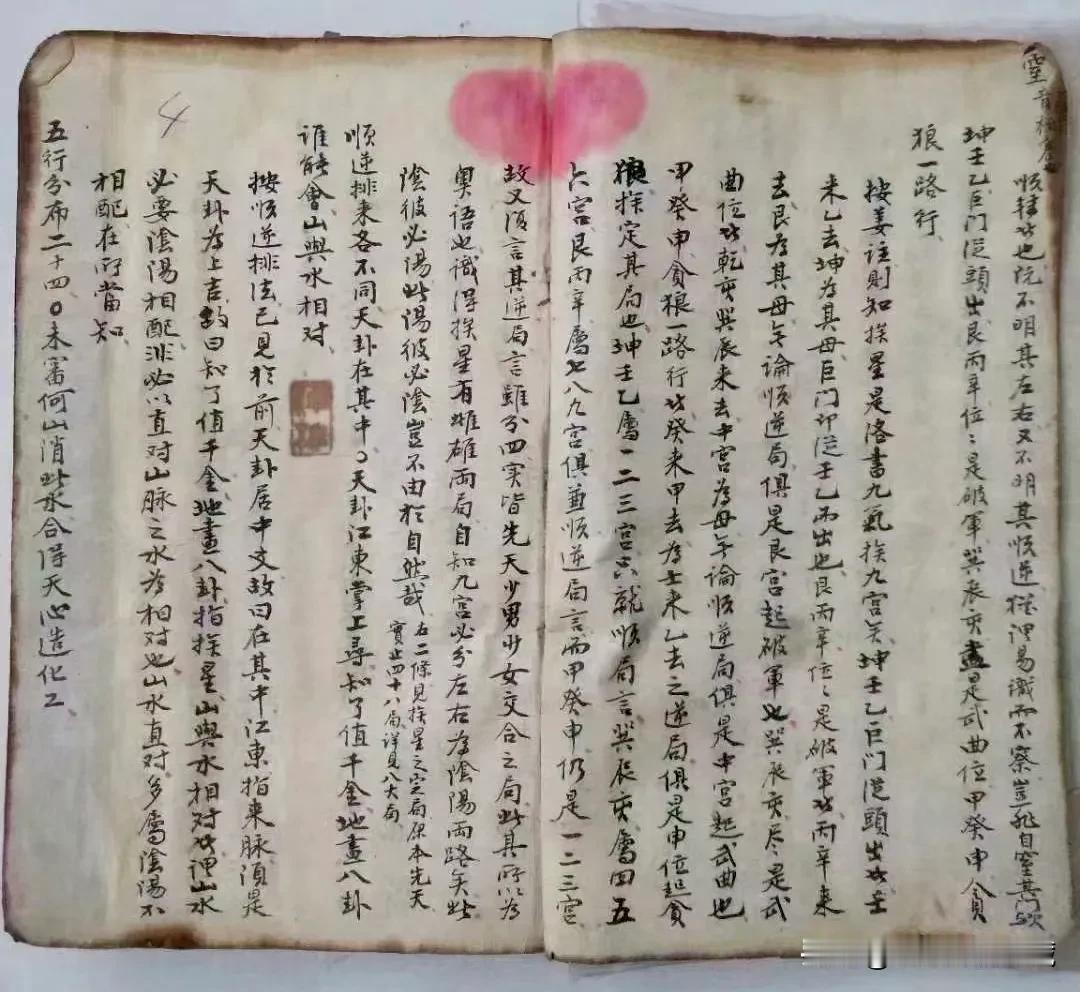 順轉者也既不明其左右又不明其順逆從理易識而不察豈非自窒其門歟
坤壬乙巨门從頭出艮丙辛位々是破軍巽辰亥盡是武曲位甲癸申貪
狼一路行、
按姜註則知挨星是洛書九氣挨九宮矣坤壬乙巨门從頭出者壬
来乙去坤為其母巨门即從壬乙而出也艮丙辛位々是破軍者丙辛来
去艮為其母無論順逆局俱是艮宮起破軍也巽辰亥尽是武
曲位者乾亥巽辰来去中宮為母無論順逆局俱是中宮起武曲也
甲癸申貪狼一路行者癸来甲去為主来乙去之逆局俱是申位起貪
狼挨定其局也坤壬乙屬一二三宮只就順局言巽辰亥屬四五
六宮艮丙辛屬七八九宮俱兼順逆局言而甲癸申仍是一二三宮
故又須言其逆局言雖分四实皆先天少男少女交合之局此其所以為
奥语也識得挨星有雌雄両局自知九宮必分左右為陰陽両路矣此
陰彼必陽此陽彼必陰豈不由於自然哉
右二條見挨星之定局保本先天
實止四十八局詳見八大局
順逆排来各不同天卦在其中〇天卦江東掌上尋知了值千金地畫八卦
谁能會山與水相对、
按順逆排法已見於前天卦居中文故曰在其中江東指来脉須是
天卦為上吉故曰知了值千金地畫八卦指挨星山與水相对者理山水
必要陰陽相配非必以直对山脉之水為相对也山水直对多屬陰陽不
相配在所當知
五行分布二十四〇未審何山消此水合得天心造化工
4